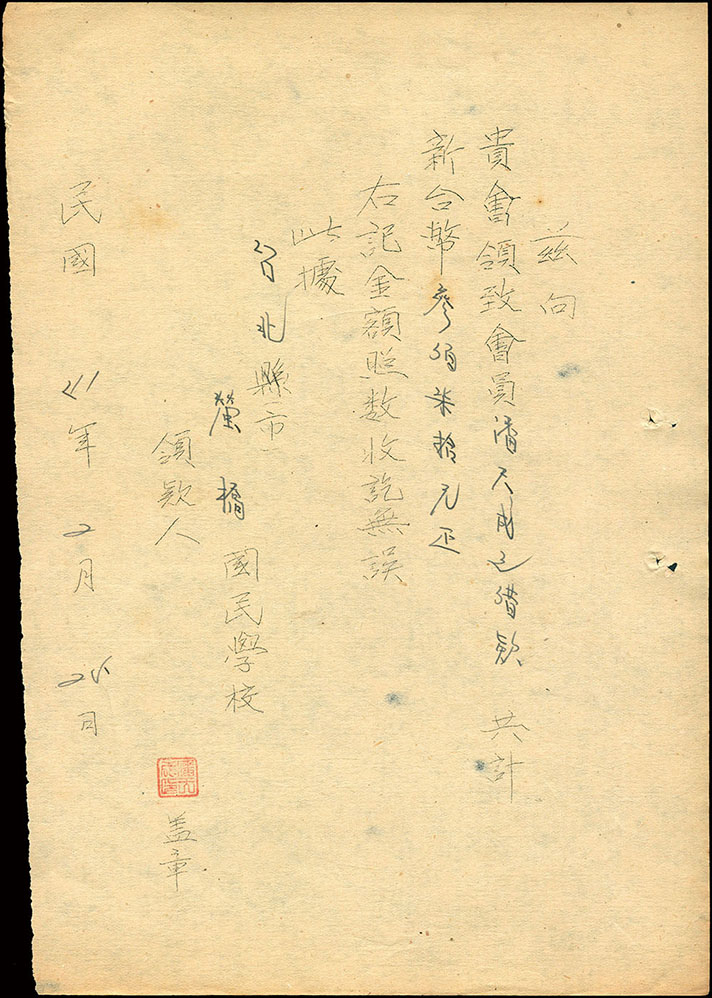 茲向
貴會領致會員潘天成之借款 共計
新台幣參佰柒拾元正
右記金額照数收訖無誤
此據
台北縣市
螢橋國民學校
領款人 盖章
民國41年2月26日